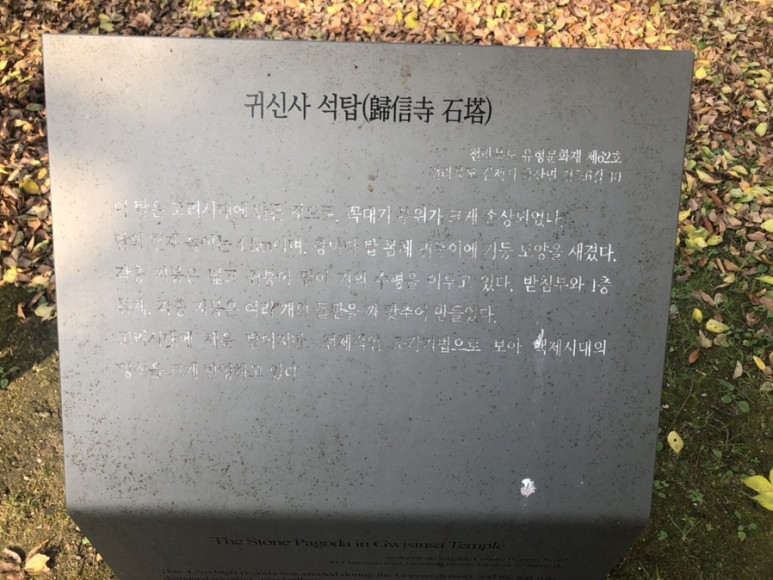 귀신사 석탑(歸信寺 石塔)
전라북도 유형문화재 제62호
전라북도 김제시 금산면 6길 10
이 탑은 고려시대에 만든 것으로, 꼭대기 부위가 크게 손상되었다.
탑의 전체 높이는 4.5m이며, 층마다 탑 몸체 귀퉁이에 기둥 모양을 새겼다.
각층 지붕은 넓고 귀퉁이 끝이 거의 수평을 이루고 있다. 받침부와 1층
몸체, 각층 지붕은 여러 개의 돌판을 짜 맞추어 만들었다.
고려시대에 세운 탑이지만, 전체적인 조각기법으로 보아 백제시대의
양식을 크게 반영하고 있다.
The Stone Pagoda in Gwisinsa Temple